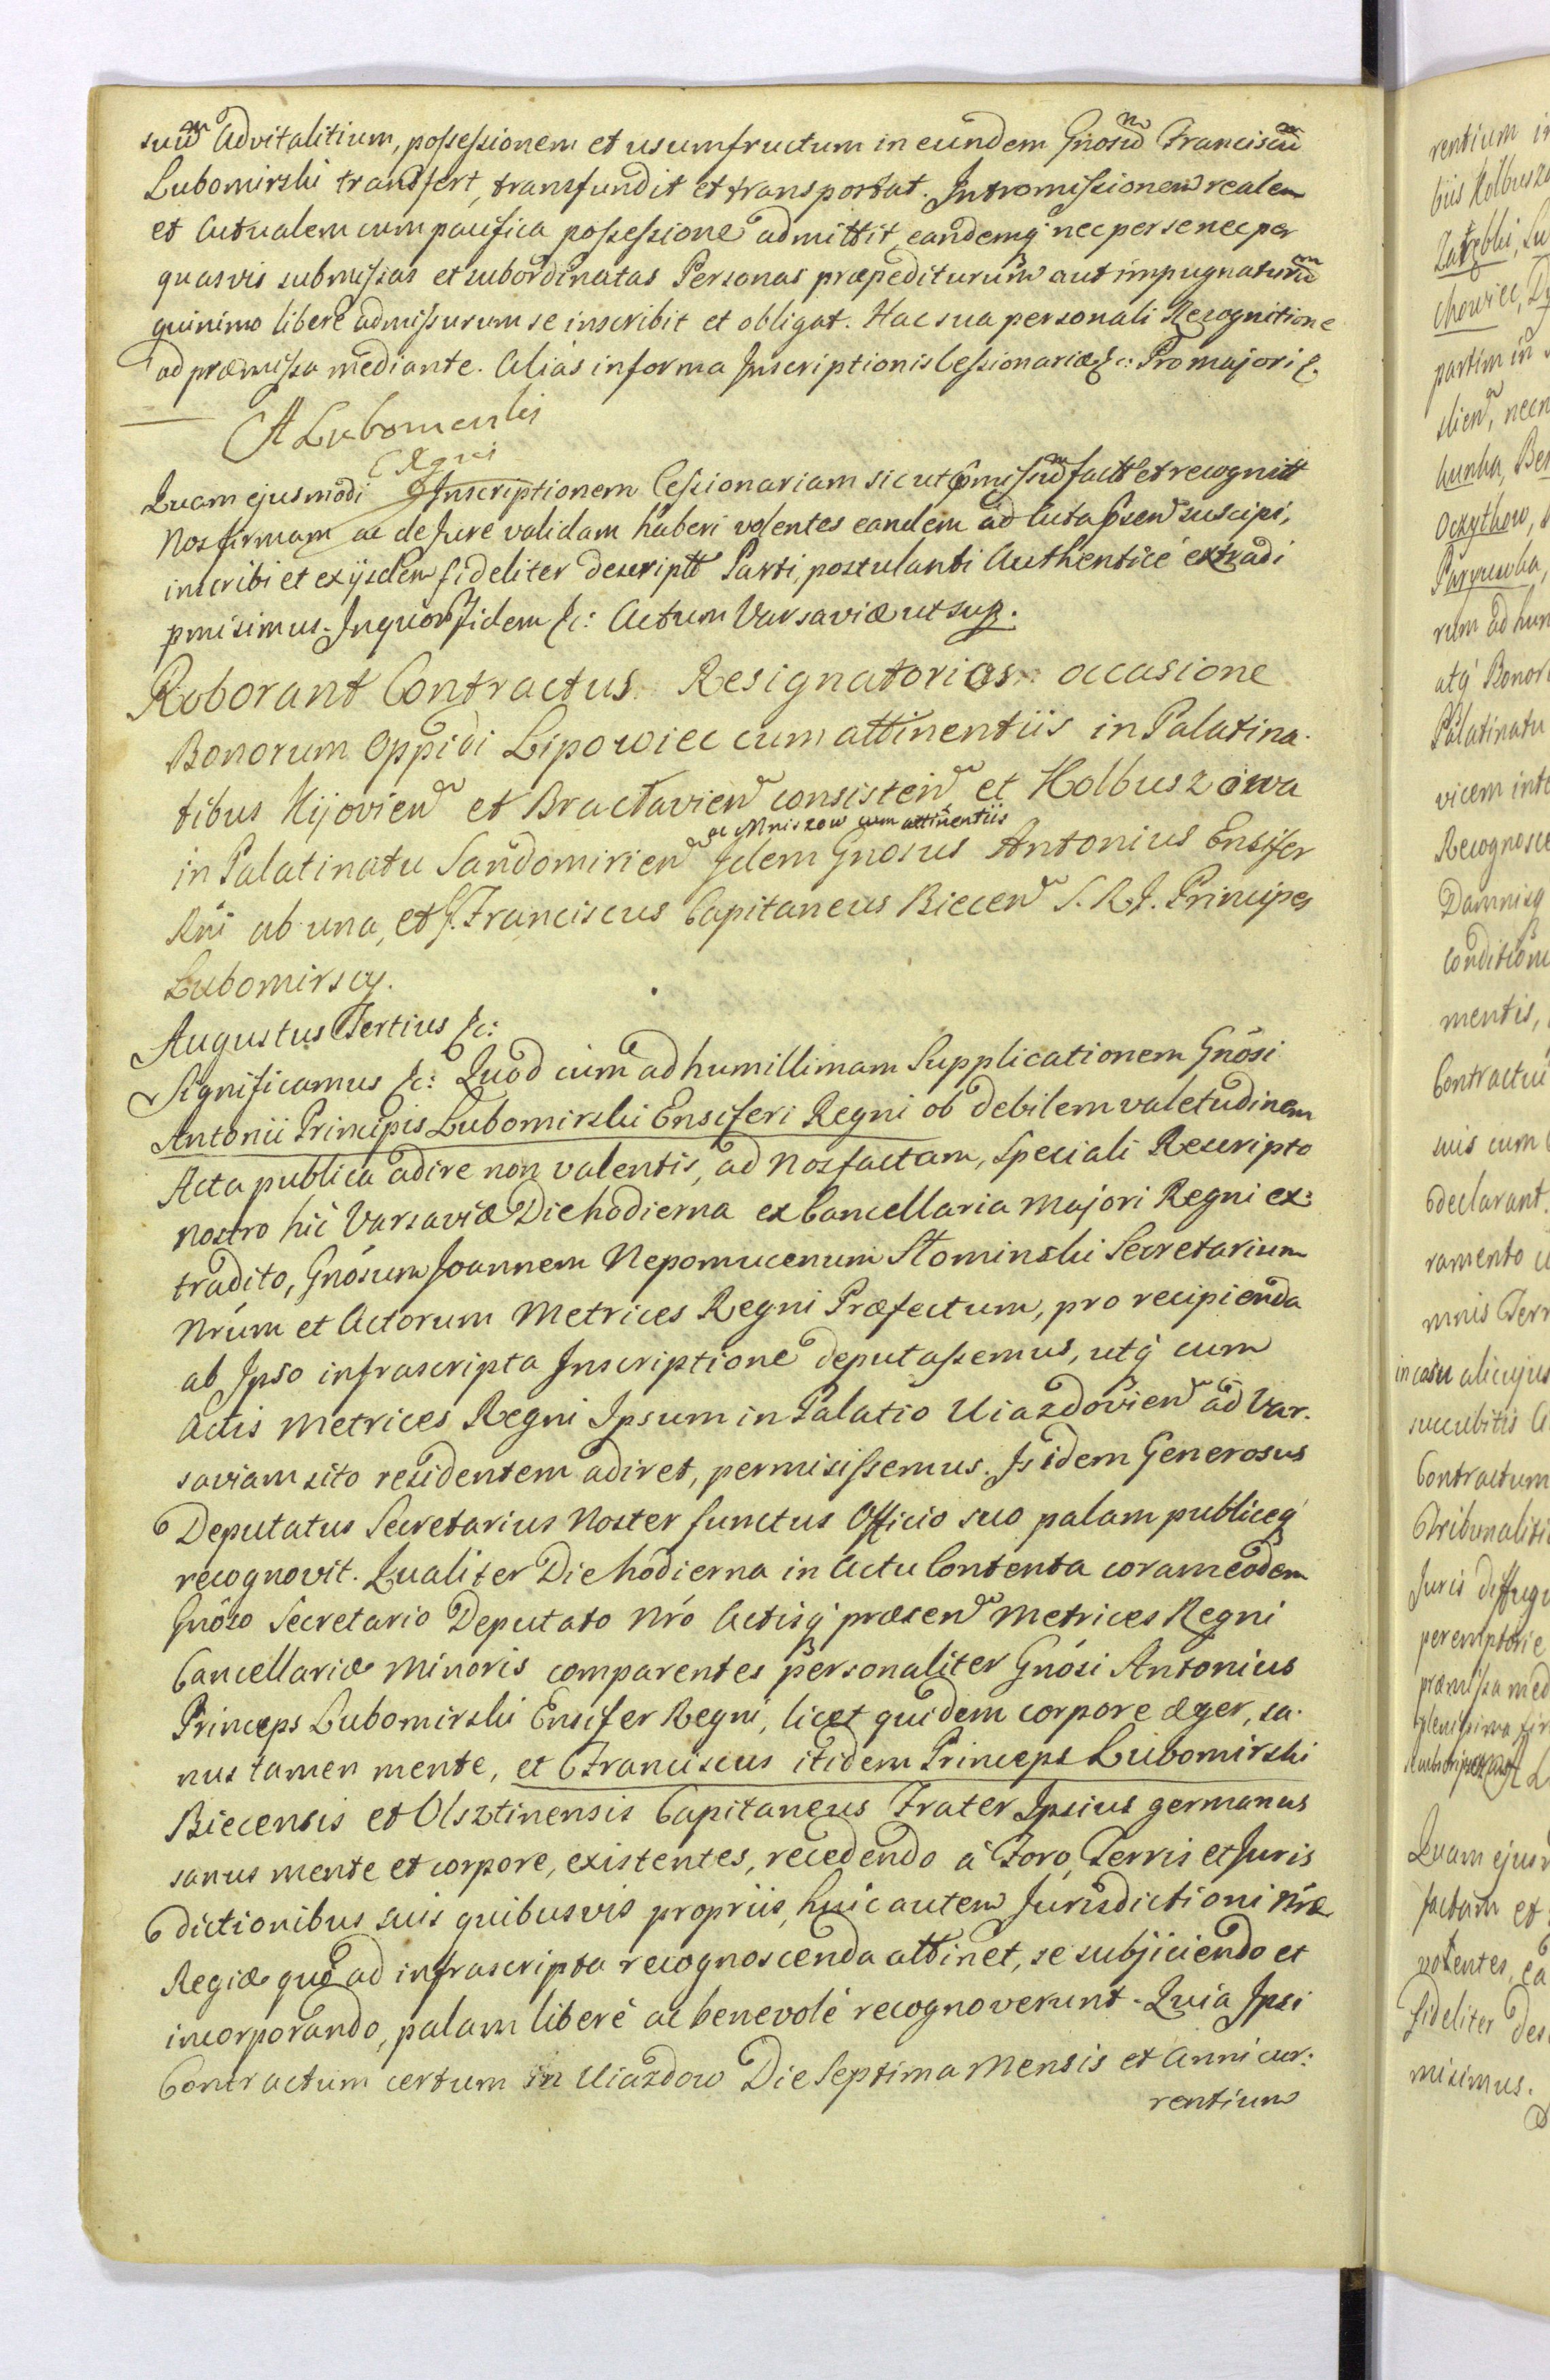 suum Advitalitium, possessionem et usumfructum in eundem Gnosum Franciscum
Lubomirski transfert, transfundit et transportat. Intromissionem realem
et Actualem cum pacifica possessione admittit, eandemq nec per se nec per
quasvis submissas et subordinatas Personas præpediturum aut impugnaturum
quinimo libere admissurum se inscribit et obligat. Hac sua personali Recognitione
ad præmissa mediante. Alias in forma Inscriptionis Cessionariæ &c: Pro majori &.
A Lubomirski
Quam ejusmodi Inscriptionem Cessionariam sicut pmissum factt et recognitt
Nos firmam ac de Jure validam haberi volentes eandem ad Acta psen suscipi,
inscribi et ex ijsdem fideliter descriptt Parti, postulanti Authentice extradi
pmisimus. In quor fidem &c: Actum Varsaviæ ut sup.
Roborant Contractus Resignatorios occasione
Bonorum Oppidi Lipowiec cum attinentiis in Palatina.
tibus Kijovien et Bractavien consisten et Kolbuszowa
ac Mniszow cum attinentiis
in Palatinatu Sandomirien Idem Gnosus Antonius Ensifer
Rni ab una, et G. Franciscus Capitaneus Biecen S. R. I. Principes
Lubomirscy.
Augustus Tertius &c:
Significamus &c: Quod cum ad humillimam Supplicationem Gnosi
Antonii Principis Lubomirski Ensiferi Regni ob debilem valetudinem
Acta publica adire non valentis, ad Nos factam, speciali Rescripto
nostro hic Varsaviæ Die hodierna ex Cancellaria majori Regni ex:
tradito, Gnosum Joannem Nepomucenum Słominski Secretarium
Nrum et Actorum Metrices Regni Præfectum, pro recipienda
ab Ipso infrascripta Inscriptione deputassemus, utq cum
Actis Metrices Regni Ipsum in Palatio Uiazdovien ad Var.
saviam sito residentem adiret, permisissemus. Is idem Generosus
Deputatus Secretarius Noster functus Officio suo palam publiceq
recognovit. Qualiter Die hodierna in Actu Contenta coram eodem
Gnoso Secretario Deputato Nro Actisq præsen Metrices Regni
Cancellariæ Minoris comparentes personaliter Gnosi Antonius
Princeps Lubomirski Ensifer Regni, licet quidem corpore æger, sa.
nus tamen mente, et Franciscus itidem Princeps Lubomirski
Biecensis et Olsztinensis Capitaneus Frater Ipsius germanus
sanus mente et corpore, existentes, recedendo à Foro, Terris et Juris
dictionibus suis quibusvis propriis, huic autem Jurisdictioni Nræ
Regiæ quo ad infrascripta recognoscenda attinet, se subjiciendo et
incorporando, palam liberè ac benevolè recognoverunt. Quia Ipsi
Contractum certum in Uiazdow Die Septima Mensis et Anni cur:
rentium